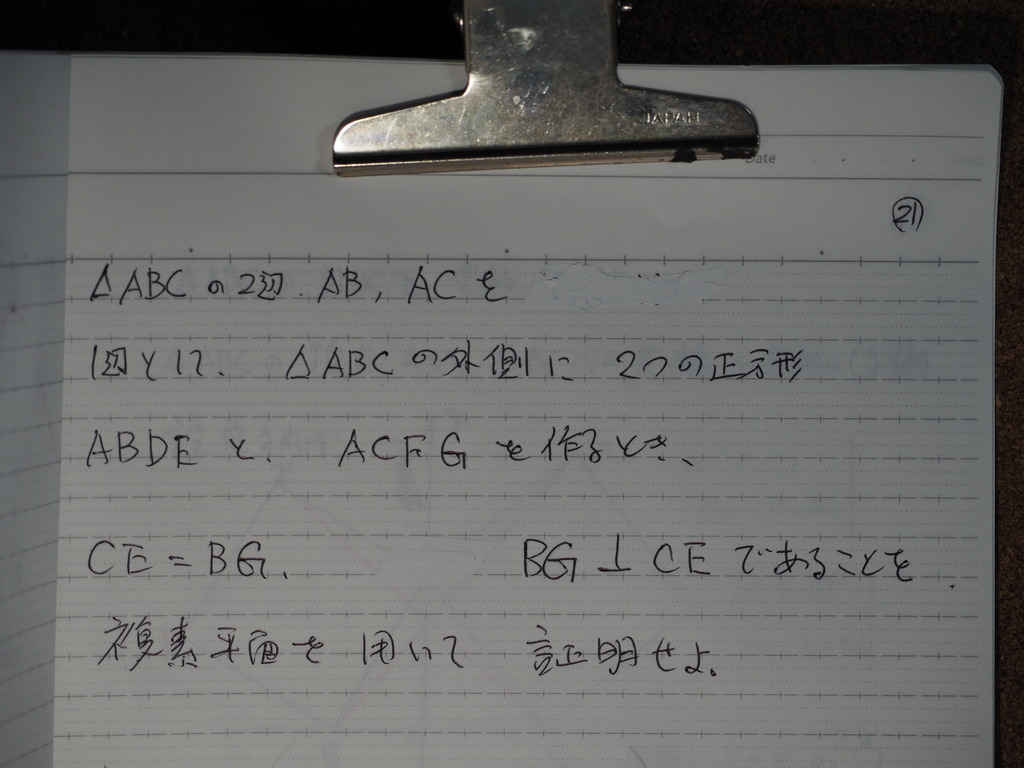 JAPAN
Date
21
△ABCの2辺. AB, ACを
1辺として、 △ABCの外側に 2つの正方形
ABDE と、 ACFG を作るとき、
CE = BG、 BG ⊥ CE であることを
複素平面を用いて 証明せよ。